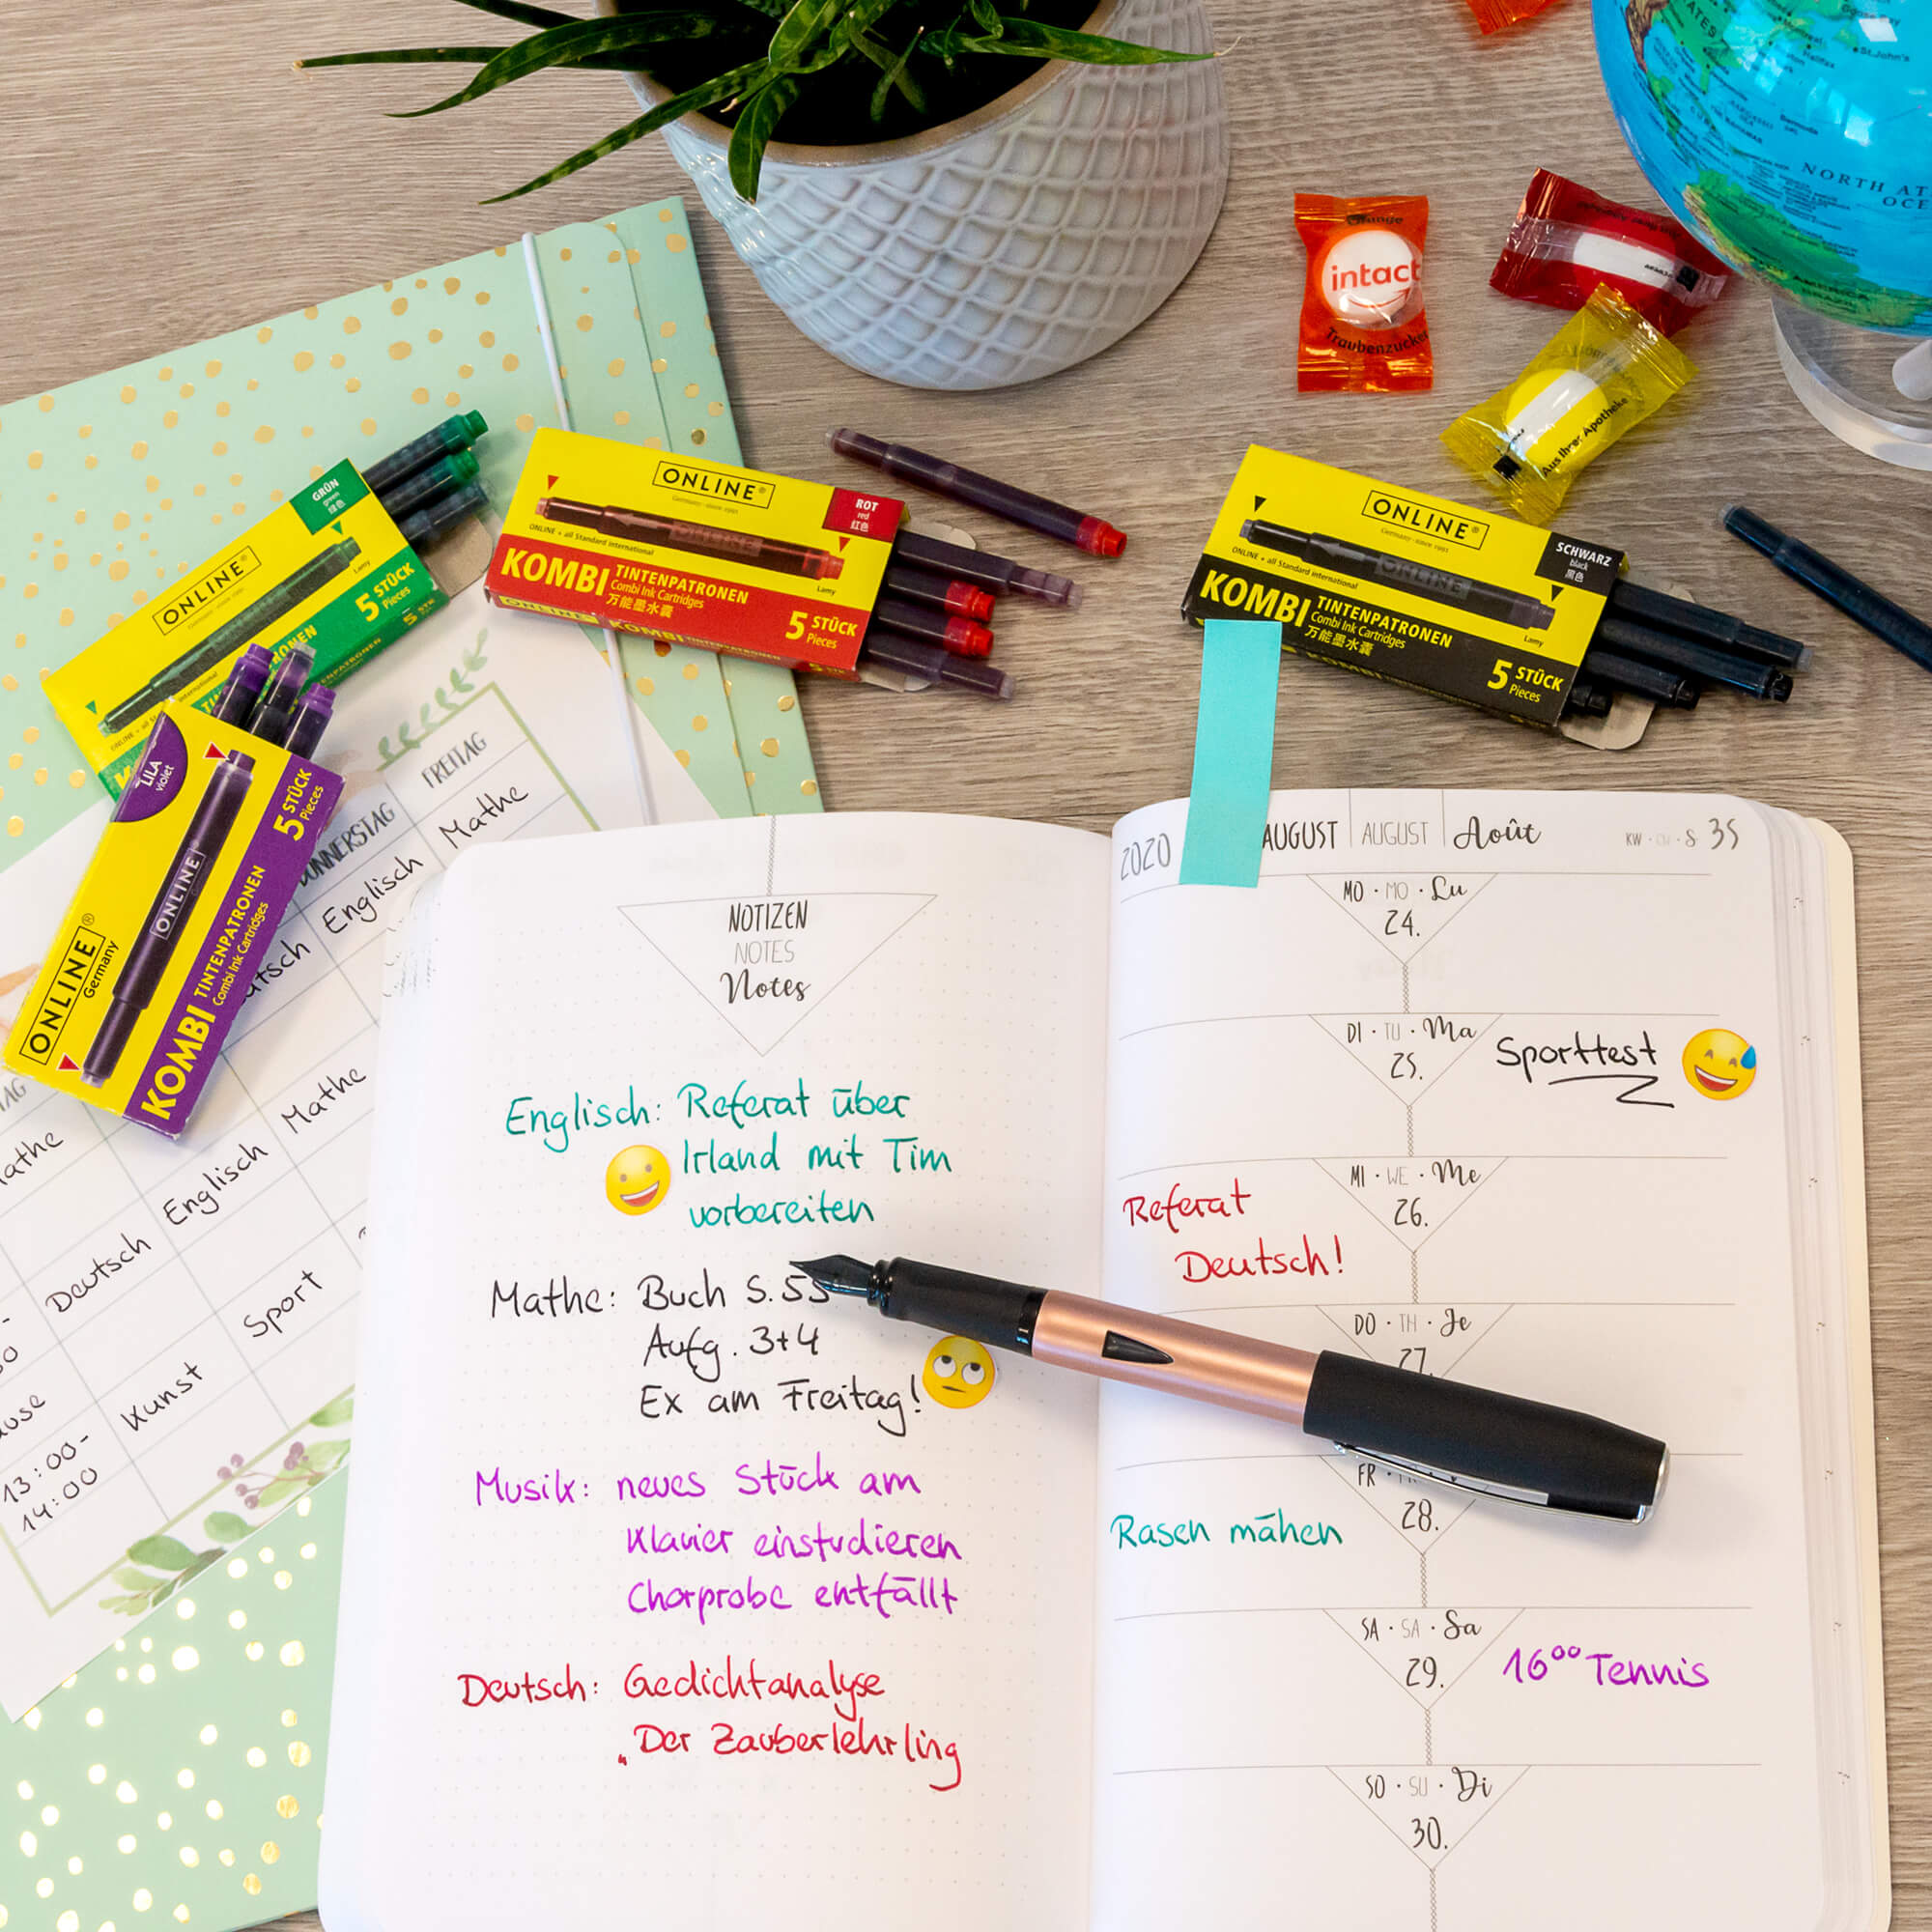 NORTH AT
OCE
Bermuda
Halifax
St.John's
intact
Traubenzucker
Aus Ihrer Apotheke
GRÜN
green
绿色
ONLINE®
5 STÜCK
Pieces
Lamy
ONLINE®
Germany · since 1991
ROT
red
红色
ONLINE + all Standard international
Lamy
KOMBI TINTENPATRONEN
Combi Ink Cartridges
万能墨水囊
5 STÜCK
Pieces
ONLINE®
Germany · since 1991
SCHWARZ
black
黑色
ONLINE + all Standard international
Lamy
KOMBI TINTENPATRONEN
Combi Ink Cartridges
万能墨水囊
5 STÜCK
Pieces
LILA
violet
5 STÜCK
Pieces
ONLINE
ONLINE®
Germany
KOMBI TINTENPATRONEN
Combi Ink Cartridges
FREITAG
Mathe
Englisch
Mathe
Englisch
Sport
Deutsch
Kunst
13:00-
14:00
NOTIZEN
NOTES
Notes
Englisch: Referat über
Irland mit Tim
vorbereiten
Mathe: Buch S. 55
Aufg. 3+4
Ex am Freitag!
Musik: neues Stück am
Klavier einstudieren
Chorprobe entfällt
Deutsch: Gedichtanalyse
„Der Zauberlehrling
2020 AUGUST | AUGUST | Août KW · CW · S 35
MO · MO · Lu
24.
DI · TU · Ma
25.
Sporttest
MI · WE · Me
26.
Referat
Deutsch!
DO · TH · Je
27.
FR
28.
Rasen mähen
SA · SA · Sa
29.
16⁰⁰ Tennis
SO · SU · Di
30.